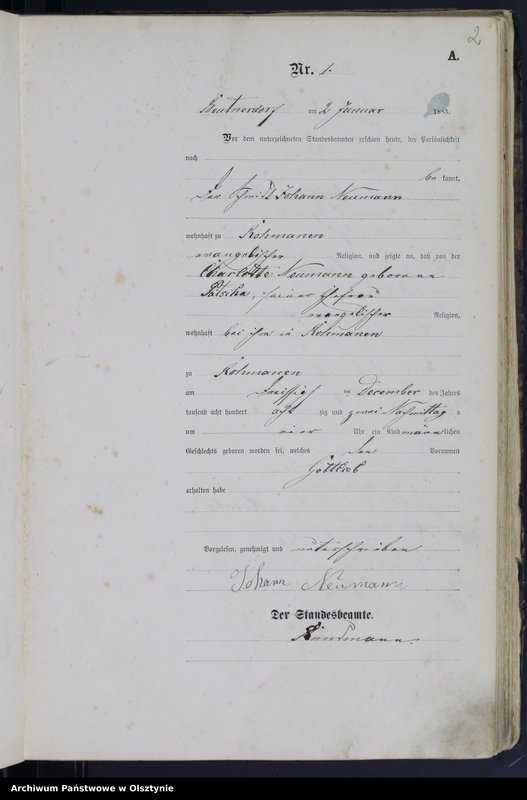 2
A.
Nr. 1.
Beutnerdorf am 2 Januar 1883.
Vor dem unterzeichneten Standesbeamten erschien heute, der Persönlichkeit
nach
be kannt,
der Schmidt Johann Neumann
wohnhaft zu Rohmanen
evangelischer Religion, und zeigte an, daß von der
Charlotte Neumann geborenen
seiner Ehefrau
evangelischer Religion,
wohnhaft bei ihm in Rohmanen
zu Rohmanen
am dreissigs ten December des Jahres
tausend acht hundert acht zig und zwei Nachmittag s
um vier Uhr ein Kind männlichen
Geschlechts geboren worden sei, welches den Vornamen
Gottlieb
erhalten habe
Vorgelesen, genehmigt und unterschrieben
Johann Neumann
Der Standesbeamte.
Archiwum Państwowe w Olsztynie